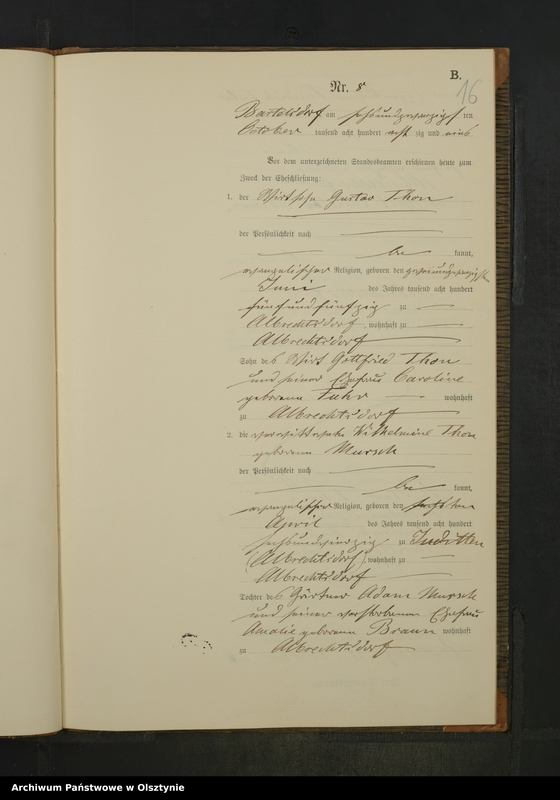 B.
16
Nr. 8
Bartelsdorf am sechsundzwanzigsten
October tausend acht hundert acht zig und eins
Vor dem unterzeichneten Standesbeamten erschienen heute zum
Zweck der Eheschließung:
1. der Wirtssohn Gustav Thon
der Persönlichkeit nach
be kannt,
evangelischer Religion, geboren den
Juni des Jahres tausend acht hundert
fünfundfünfzig zu
Albrechtsdorf, wohnhaft zu
Albrechtsdorf
Sohn des Wirt Gottfried Thon
und seiner Ehefrau Caroline
geborene wohnhaft
zu Albrechtsdorf
2. die verwittwete Wilhelmine Thon
geborene Mursch
der Persönlichkeit nach
be kannt,
evangelischer Religion, geboren den sechsten
April des Jahres tausend acht hundert
sechsundvierzig zu Juditten
(Albrechtsdorf), wohnhaft zu
Albrechtsdorf
Tochter des Gärtner Adam Mursch
und seiner verstorbenen Ehefrau
Amalie geborene Braun wohnhaft
zu Albrechtsdorf
Archiwum Państwowe w Olsztynie